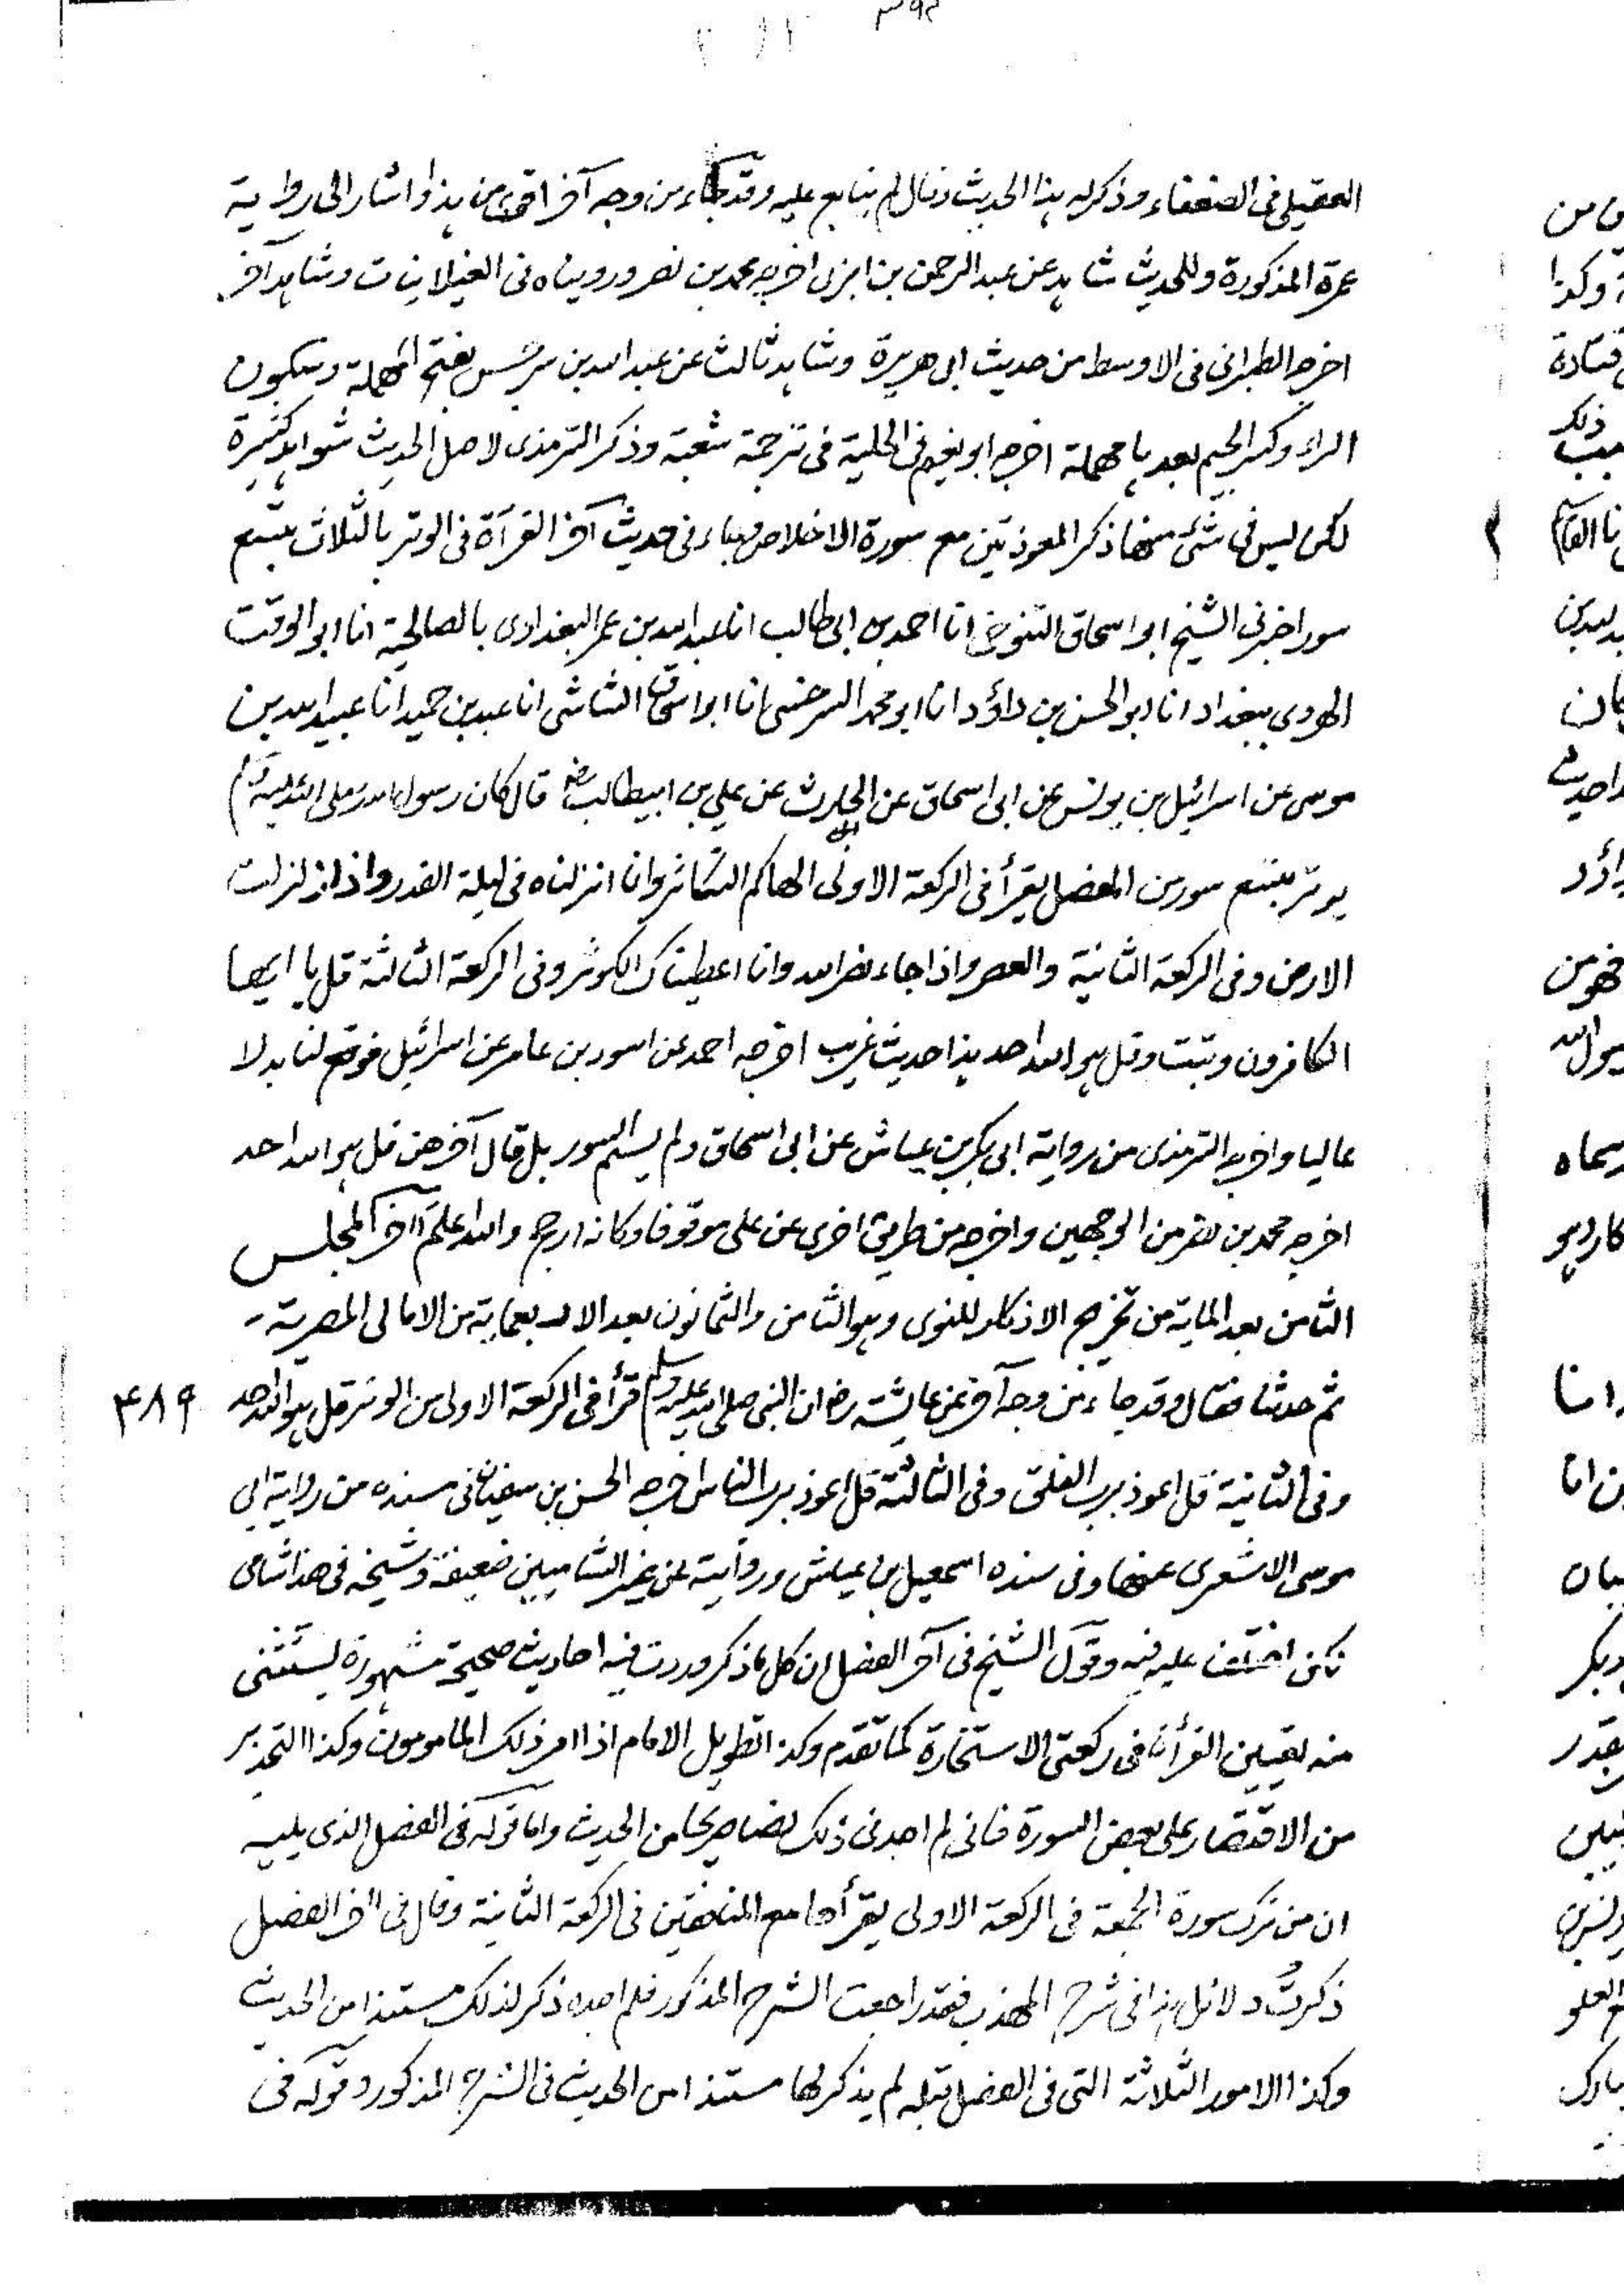 العقيلى فى الضعفاء وذكر له هذا الحديث وقال لم يتابع عليه وقد جاء من وجه آخر اقوى من هذا واشار الى رواية
عمرة المذكورة وللحديث شاهد عن عبد الرحمن بن ابزى اخرجه محمد بن نصر ورويناه فى الغيلانيات وشاهد آخر
اخرجه الطبرانى فى الاوسط من حديث ابى هريرة وشاهد ثالث عن عبد الله بن سرجس بفتح المهملة وسكون
الراء وكسر الجيم بعدها مهملة اخرجه ابو نعيم فى الحلية فى ترجمة شعبة وذكر الترمذى لاصل الحديث شواهد كثيرة
لكن ليس فى شئ منها ذكر المعوذتين مع سورة الاخلاص وجاء فى حديث آخر القرآة فى الوتر بالثلاث بتسع
سور اخبرنى الشيخ ابو اسحاق التنوخى انا احمد بن ابى طالب انا عبد الله بن عمر البغدادى بالصالحية انا ابو الوقت
الهروى ببغداد انا ابو الحسن بن داؤد انا ابو محمد السرخسى انا ابو اسحاق الشاشى انا عبد بن حميد انا عبيد الله بن
موسى عن اسرائيل بن يونس عن ابى اسحاق عن الحارث عن علي بن ابيطالب رض قال كان رسول الله صلى الله عليه وسلم
يوتر بتسع سور من المفصل يقرأ فى الركعة الاولى الهاكم التكاثر وانا انزلناه فى ليلة القدر واذا زلزلت
الارض وفى الركعة الثانية والعصر واذا جاء نصر الله وانا اعطيناك الكوثر وفى الركعة الثالثة قل يا ايها
الكافرون وتبت وقل هو الله احد هذا حديث غريب اخرجه احمد عن اسود بن عامر عن اسرائيل فوقع لنا بدلا
عاليا واخرجه الترمذى من رواية ابى بكر بن عياش عن ابى اسحاق ولم يسم السور بل قال آخرهن قل هو الله احد
اخرجه محمد بن نصر من الوجهين واخرجه من طريق اخرى عن على موقوفا وكانه ارجح والله اعلم آخر المجلس
الثامن بعد الماية من تخريج الاذكار للنووى وهو الثامن والثمانون بعد الاربعماية من الامالى المصرية
ثم حدثنا فقال وقد جاء من وجه آخر عن عايشة رض ان النبى صلى الله عليه وسلم قرأ فى الركعة الاولى من الوتر قل هو الله احد ٤٨٩
وفى الثانية قل اعوذ برب الفلق وفى الثالثة قل اعوذ برب الناس اخرجه الحسن بن سفيان فى مسنده من رواية ابى
موسى الاشعرى عنها وفى سنده اسمعيل بن عياش وروايته عن غير الشاميين ضعيفة وشيخه فى هذا شامى
لكن اختلف عليه فيه وقول الشيخ فى آخر الفصل ان كل ما ذكر وردت فيه احاديث صحيحة مشهورة يستثنى
منه تعيين القرأة فى ركعتى الاستخارة كما تقدم وكذا تطويل الامام اذا امر ذلك المامومون وكذا التحذير
من الاقتصار على بعض السورة فانى لم اجد فى ذلك نصا صريحا من الحديث واما قوله فى الفصل الذى يليه
ان من ترك سورة الجمعة فى الركعة الاولى يقرأها مع المنافقين فى الركعة الثانية وقال فى اخر الفصل
ذكرت دلائل هذا فى شرح المهذب فقد راجعت الشرح المذكور فلم اجده ذكر لذلك مستندا من الحديث
وكذا الامور الثلاثة التى فى الفصل قبله لم يذكر لها مستندا من الحديث فى الشرح المذكور وقوله فى